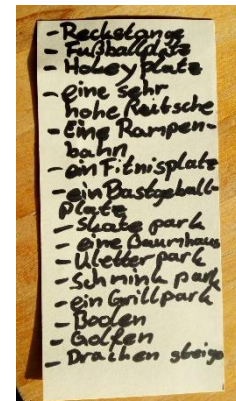 - Reckstange
- Fußballplatz
- Hokeyplatz
- eine sehr
hohe Rutsche
- Eine Rampen-
bahn
- ein Fitnisplatz
- ein Bastgeball-
Platz
- Skate park
- eine Baumhaus
- Kletterpark
- Schmink park
- ein Grillpark
- Booten
- Golfen
- Drachen steige